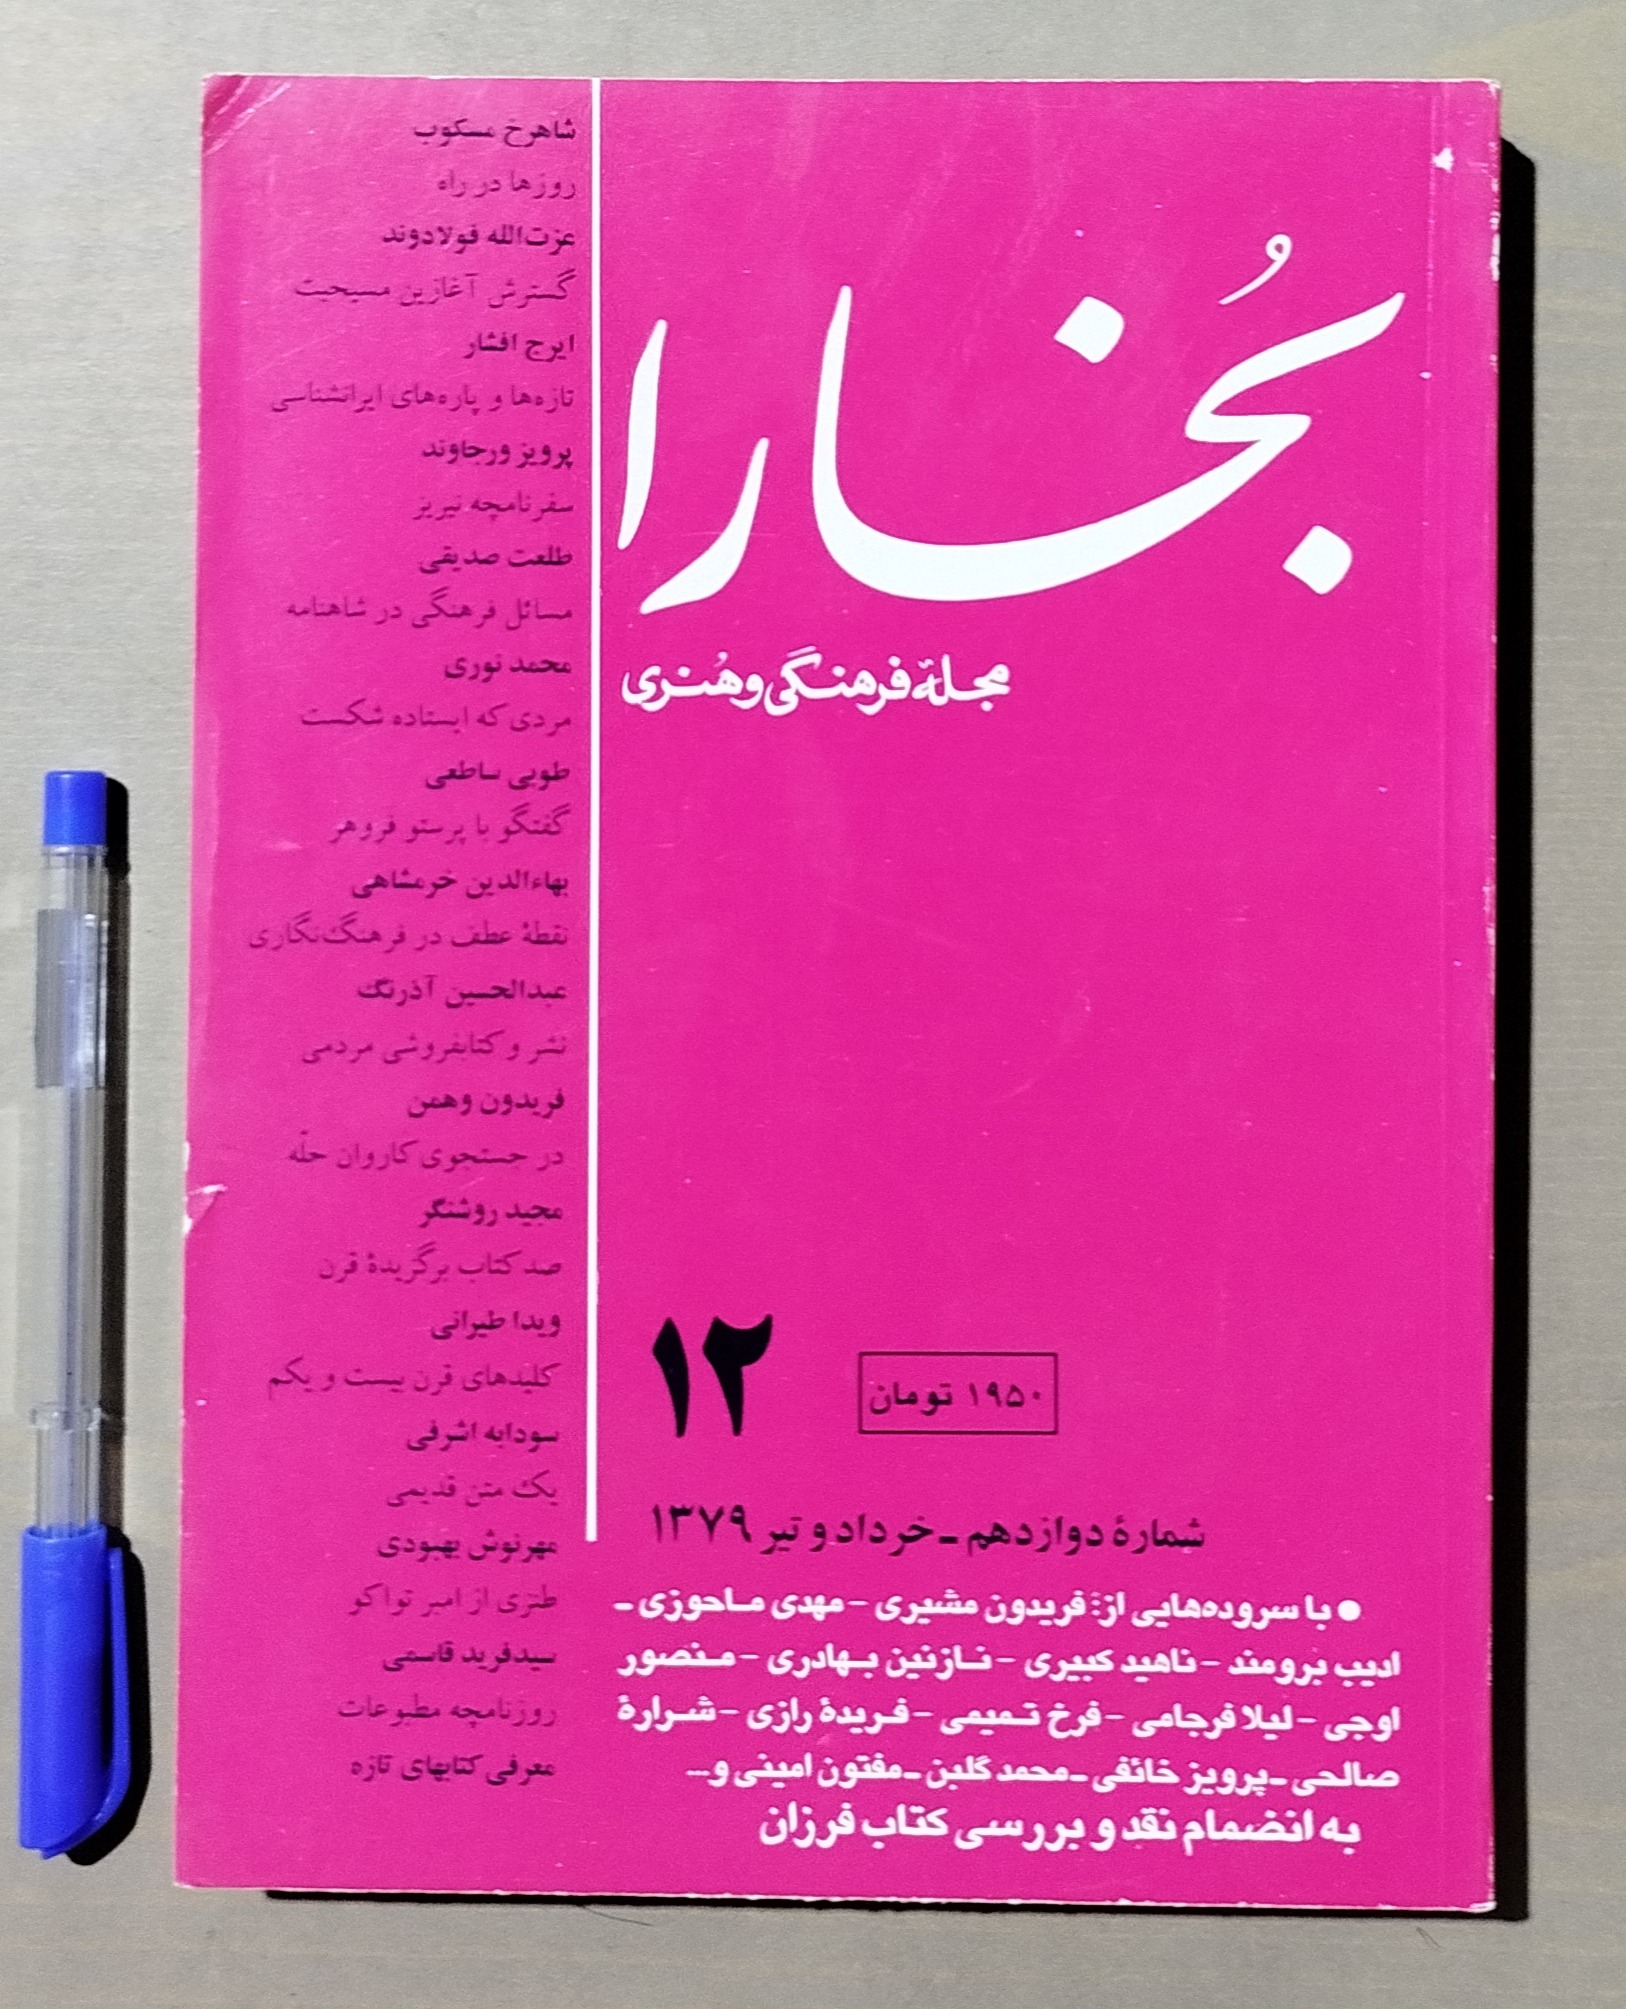 بُخارا
مجلهٔ فرهنگی و هُنری
شاهرخ مسکوب
روزها در راه
عزت‌الله فولادوند
گسترش آغازین مسیحیت
ایرج افشار
تازه‌ها و پاره‌های ایرانشناسی
پرویز ورجاوند
سفرنامچه نیریز
طلعت صدیقی
مسائل فرهنگی در شاهنامه
محمد نوری
مردی که ایستاده شکست
طوبی ساطعی
گفتگو با پرستو فروهر
بهاءالدین خرمشاهی
نقطهٔ عطف در فرهنگ‌نگاری
عبدالحسین آذرنگ
نشر و کتابفروشی مردمی
فریدون وهمن
در جستجوی کاروان حلّه
مجید روشنگر
صد کتاب برگزیدهٔ قرن
ویدا طیرانی
کلیدهای قرن بیست و یکم
سودابه اشرفی
یک متن قدیمی
مهرنوش بهبودی
طنزی از امبرتو اکو
سیدفرید قاسمی
روزنامچه مطبوعات
معرفی کتابهای تازه
۱۲
۱۹۵۰ تومان
شمارهٔ دوازدهم ـ خرداد و تیر ۱۳۷۹
● با سروده‌هایی از: فریدون مشیری – مهدی ماحوزی ـ
ادیب برومند – ناهید کبیری – نازنین بهادری – منصور
اوجی – لیلا فرجامی – فرخ تمیمی – فریدهٔ رازی – شرارهٔ
صالحی ـ پرویز خائفی ـ محمد گلبن ـ مفتون امینی و...
به انضمام نقد و بررسی کتاب فرزان